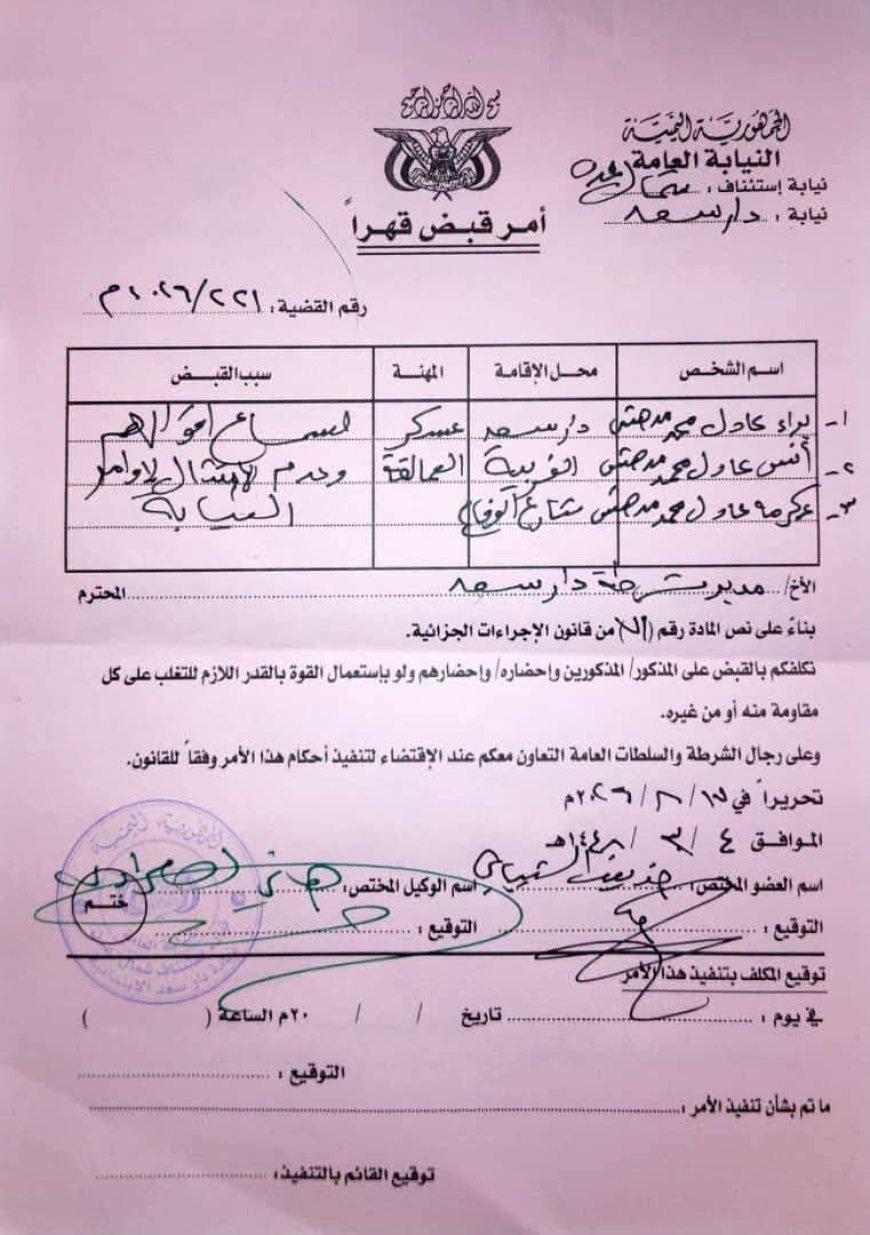 بسم الله الرحمن الرحيم
الجمهورية اليمنية
النيابة العامة
نيابة إستئناف : شمال عدن
نيابة : دار سعد
أمر قبض قهراً
رقم القضية : ٢٢١/٢٠٢٦م
اسم الشخص محل الإقامة المهنة سبب القبض
١- براء عادل محمد دار سعد عسكر لسماع اقوالهم
٢- أنس عادل محمد الغربية العمالقة وعدم الامتثال لاوامر
٣- عكرمة عادل محمد شارع النيابة
الأخ/ مدير شرطة دار سعد المحترم
بناءً على نص المادة رقم ( ) من قانون الإجراءات الجزائية.
نكلفكم بالقبض على المذكور/ المذكورين وإحضاره/ وإحضارهم ولو بإستعمال القوة بالقدر اللازم للتغلب على كل
مقاومة منه أو من غيره.
وعلى رجال الشرطة والسلطات العامة التعاون معكم عند الإقتضاء لتنفيذ أحكام هذا الأمر وفقاً للقانون.
تحريراً في ١٧/ ٨/ ٢٠٢٦م
الموافق ٤ / ٣/ ١٤٤٨هـ
اسم العضو المختص : الشيباني اسم الوكيل المختص : هاني
ختم
التوقيع : التوقيع :
توقيع المكلف بتنفيذ هذا الأمر
في يوم : تاريخ / / ٢٠م الساعة ( )
التوقيع :
ما تم بشأن تنفيذ الأمر :
توقيع القائم بالتنفيذ :